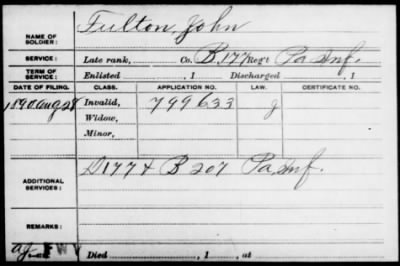 NAME OF SOLDIER: Fulton, John
SERVICE: Late rank, Co. B, 177 Reg't Pa Inf.
TERM OF SERVICE: Enlisted , 1 Discharged , 1
DATE OF FILING. CLASS. APPLICATION NO. LAW. CERTIFICATE NO.
1890 Aug 28 Invalid, 799633 J
Widow,
Minor,
ADDITIONAL SERVICES: D 177 & B 207 Pa Inf.
REMARKS:
FWV Died , 1 , at